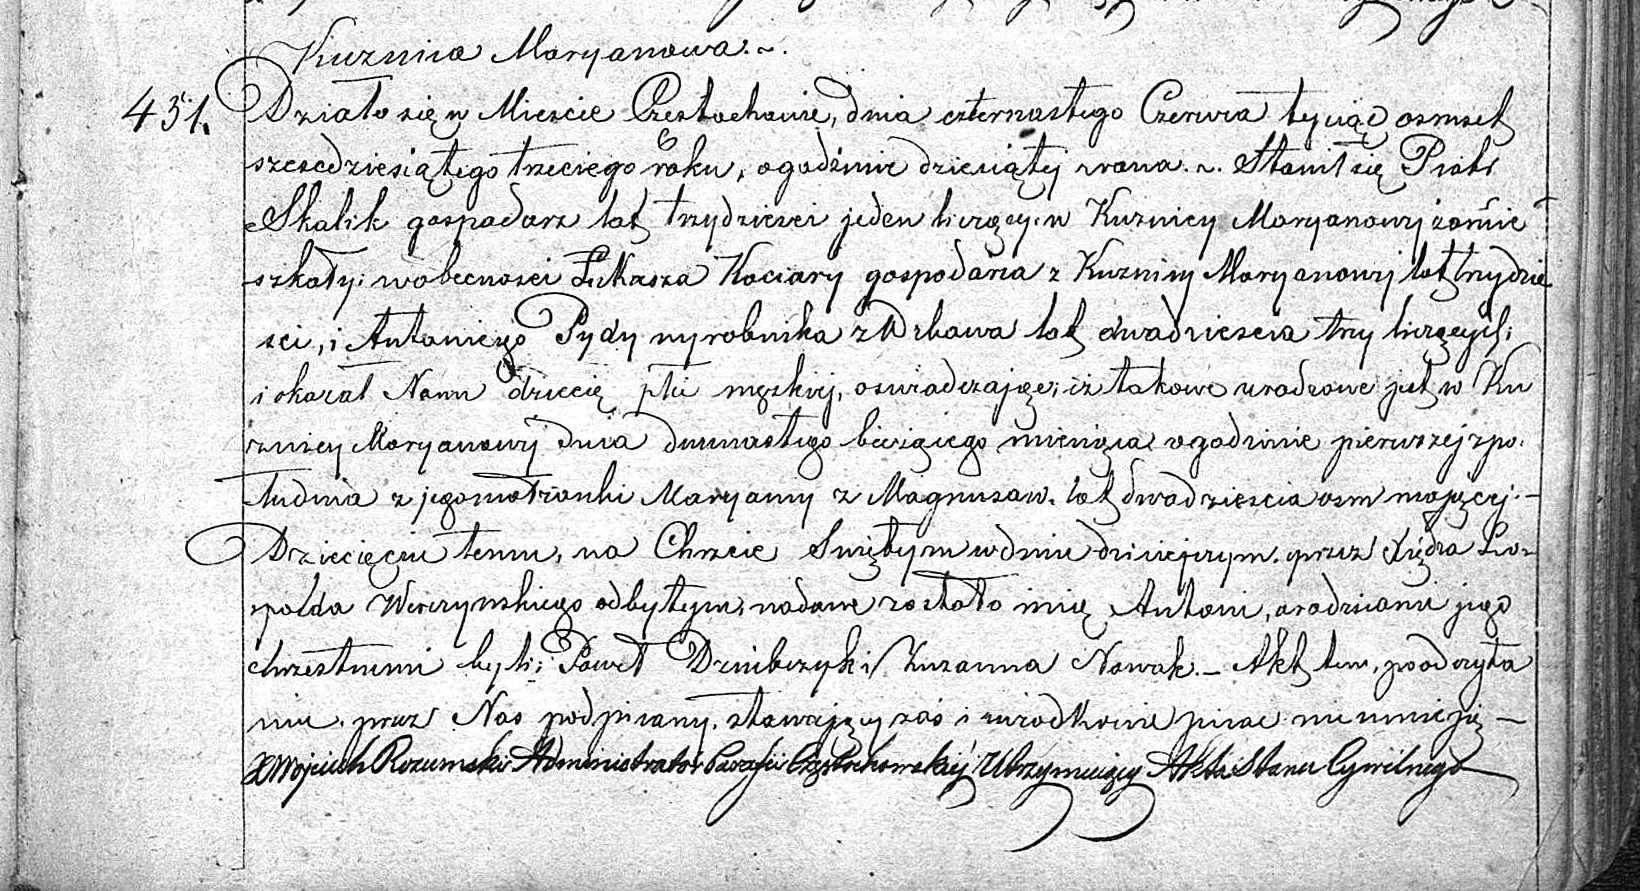 Kuznica Maryanowa.~.
451. Działo się w Mieście Częstochowie, dnia czternastego Czerwca tysiąc osmset
szescdziesiątego trzeciego roku, o godzinie dziesiątej zrana.~. Stawił się Piotr
Skalik gospodarz lat trzydzieści jeden liczący, w Kuznicy Maryanowy zamie
szkały; w obecnosci Łukasza Kociary gospodarza z Kuznicy Maryanowy lat trzydzie
sci, i Antoniego Pydy wyrobnika z Wrbawa lat dwadziescia trzy liczących;
i okazał Nam dziecię płci męzkiej, oswiadczając; iż takowe urodzone jest w Ku
znicy Maryanowy dnia dwunastego bieżącego miesiąca o godzinie pierwszej zpo
łudnia z jego małżonki Maryanny z Magnusaw. lat dwadziescia osm mającej.—
Dziecięciu temu, na Chrzcie Swiętym w dniu dzisiejszym przez Xiędza Leo-
polda Werczynskiego odbytym, nadane zostało imię Antoni, a rodzicami jego
chrzestnemi byli; Paweł Dziubczyk i Zuzanna Nowak.— Akt ten, po odczyta
niu, przez Nas podpisany, stawający zaś i swiadkowie pisac nie umieją —
X Wojciech Rozumski Administrator Parafii Częstochowskiéj Utrzymujący Akta Stanu Cywilnego